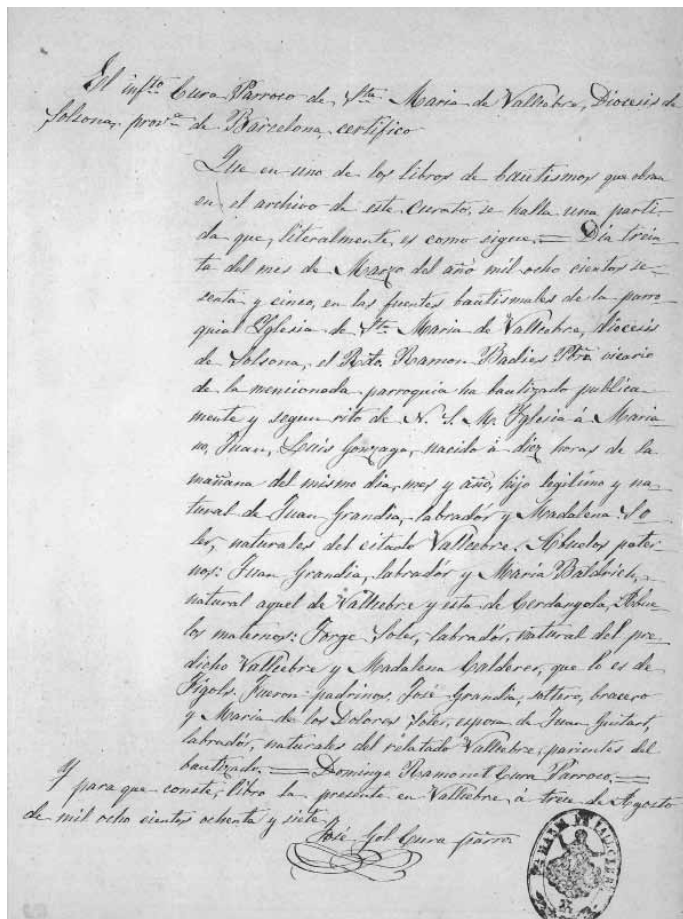 El infto Cura Párroco de Sta Maria de Vallcebre, Diocesis de
Solsona, provª de Barcelona, certifico
Que en uno de los libros de bautismos que obran
en el archivo de este Curato, se halla una parti-
da que, literalmente, es como sigue. = Dia trein-
ta del mes de Marzo del año mil ocho cientos se-
senta y cinco, en las fuentes bautismales de la parro-
quial Yglesia de Sta Maria de Vallcebre, diocesis
de Solsona, el Rdo. Ramon Badies Pbro vicario
de la mencionada parroquia ha bautizado publica-
mente y segun rito de N. S. M. Yglesia á Maria-
no, Juan, Luis Gonzaga, nacido á diez horas de la
mañana del mismo dia, mes y año, hijo legitimo y na-
tural de Juan Grandia, labradór y Madalena So-
ler, naturales del citado Vallcebre. Abuelos pater-
nos: Juan Grandia, labradór y Maria Baldrich,
natural aquel de Vallcebre y esta de Cerdanyola, Abue-
los maternos: Jorge Soler, labradór, natural del pre-
dicho Vallcebre y Madalena Calderer, que lo es de
Figols. Fueron padrinos, José Grandia, soltero, bracero
y Maria de los Dolores Soler, esposa de Juan Guitart,
labradór, naturales del relatado Vallcebre, parientes del
bautizado. = Domingo Ramonet Cura Párroco. =
Y para que conste, libro la presente en Vallcebre, á trece de Agosto
de mil ocho cientos ochenta y siete
José Gol Cura párro